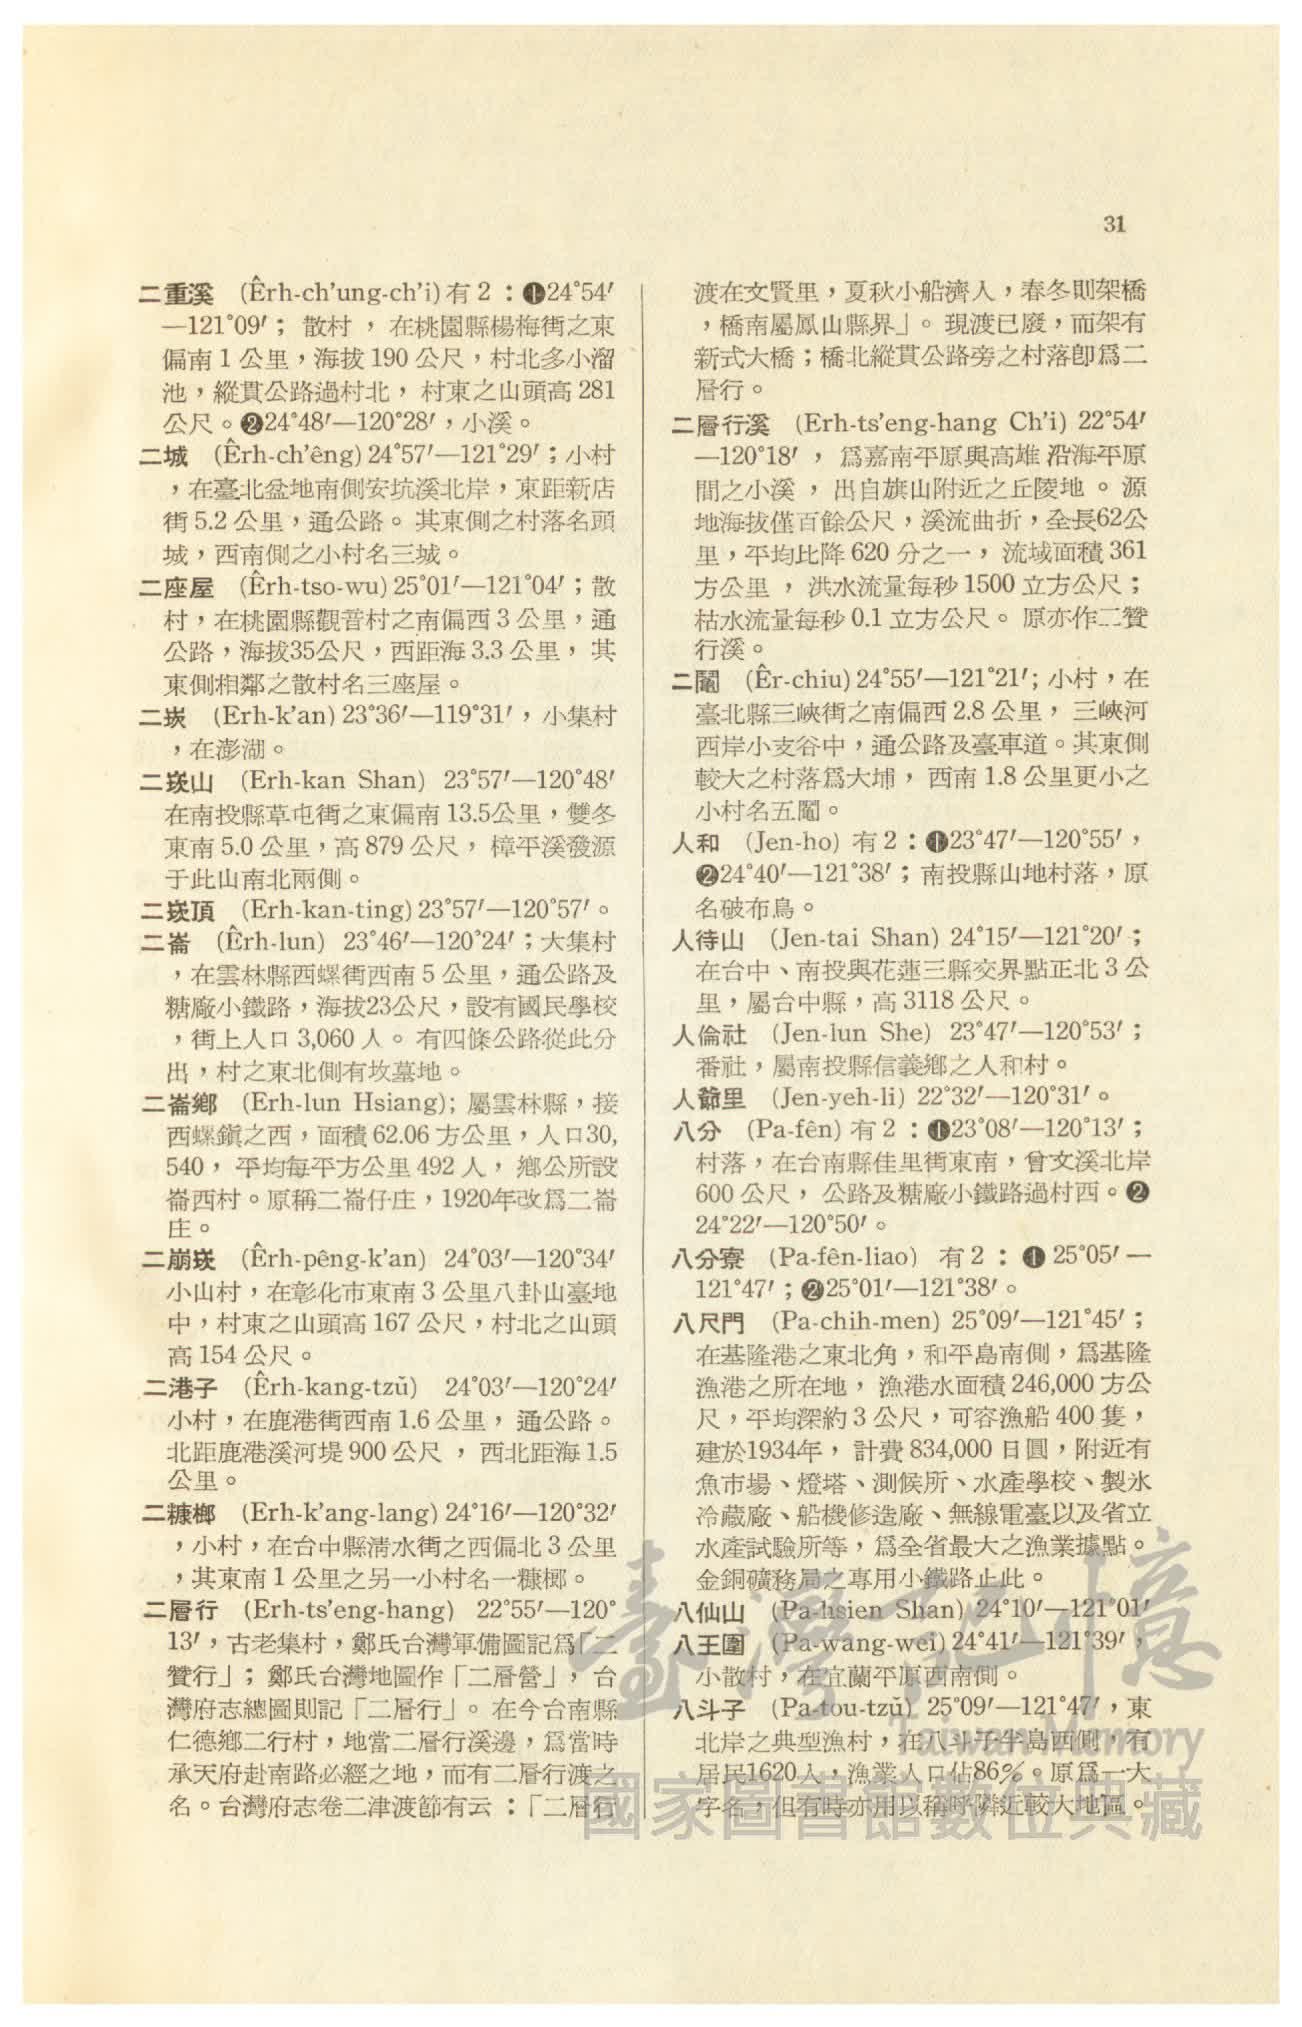 31
二重溪 (Êrh-ch'ung-ch'i)有2：❶24°54′
—121°09′； 散村 ， 在桃園縣楊梅街之東
偏南1公里，海拔190公尺，村北多小溜
池，縱貫公路過村北， 村東之山頭高281
公尺。❷24°48′—120°28′，小溪。
二城 (Êrh-ch'êng)24°57′—121°29′；小村
，在臺北盆地南側安坑溪北岸，東距新店
街5.2公里，通公路。 其東側之村落名頭
城，西南側之小村名三城。
二座屋 (Êrh-tso-wu)25°01′—121°04′；散
村，在桃園縣觀音村之南偏西3公里，通
公路，海拔35公尺，西距海3.3公里， 其
東側相鄰之散村名三座屋。
二崁 (Erh-k'an)23°36′—119°31′，小集村
，在澎湖。
二崁山 (Erh-kan Shan) 23°57′—120°48′
在南投縣草屯街之東偏南13.5公里，雙冬
東南5.0公里，高879公尺， 樟平溪發源
于此山南北兩側。
二崁頂 (Erh-kan-ting)23°57′—120°57′。
二崙 (Êrh-lun) 23°46′—120°24′；大集村
，在雲林縣西螺街西南5公里，通公路及
糖廠小鐵路，海拔23公尺，設有國民學校
，街上人口3,060人。 有四條公路從此分
出，村之東北側有坟墓地。
二崙鄉 (Erh-lun Hsiang); 屬雲林縣，接
西螺鎭之西，面積62.06方公里，人口30,
540， 平均每平方公里492人， 鄉公所設
崙西村。原稱二崙仔庄，1920年改爲二崙
庄。
二崩崁 (Êrh-pêng-k'an) 24°03′—120°34′
小山村，在彰化市東南3公里八卦山臺地
中，村東之山頭高167公尺，村北之山頭
高154公尺。
二港子 (Êrh-kang-tzŭ) 24°03′—120°24′
小村，在鹿港街西南1.6公里， 通公路。
北距鹿港溪河堤900公尺 ， 西北距海1.5
公里。
二糠榔 (Erh-k'ang-lang)24°16′—120°32′
，小村，在台中縣淸水街之西偏北3公里
，其東南1公里之另一小村名一糠榔。
二層行 (Erh-ts'eng-hang) 22°55′—120°
13′，古老集村，鄭氏台灣軍備圖記爲「二
贊行」； 鄭氏台灣地圖作「二層營」， 台
灣府志總圖則記「二層行」。 在今台南縣
仁德鄉二行村，地當二層行溪邊，爲當時
承天府赴南路必經之地，而有二層行渡之
名。台灣府志卷二津渡節有云：「二層行
渡在文賢里，夏秋小船濟人，春冬則架橋
，橋南屬鳳山縣界」。 現渡已廢，而架有
新式大橋；橋北縱貫公路旁之村落卽爲二
層行。
二層行溪 (Erh-ts'eng-hang Ch'i) 22°54′
—120°18′ ， 爲嘉南平原與高雄沿海平原
間之小溪 ， 出自旗山附近之丘陵地 。 源
地海拔僅百餘公尺，溪流曲折，全長62公
里，平均比降620分之一， 流域面積361
方公里 ， 洪水流量每秒1500立方公尺；
枯水流量每秒0.1立方公尺。 原亦作二贊
行溪。
二鬮 (Êr-chiu)24°55′—121°21′; 小村，在
臺北縣三峽街之南偏西2.8公里， 三峽河
西岸小支谷中，通公路及臺車道。其東側
較大之村落爲大埔， 西南1.8公里更小之
小村名五鬮。
人和 (Jen-ho) 有2：❶23°47′—120°55′，
❷24°40′—121°38′；南投縣山地村落，原
名破布烏。
人待山 (Jen-tai Shan) 24°15′—121°20′；
在台中、南投與花蓮三縣交界點正北3公
里，屬台中縣，高3118公尺。
人倫社 (Jen-lun She) 23°47′—120°53′；
番社，屬南投縣信義鄉之人和村。
人爺里 (Jen-yeh-li) 22°32′—120°31′。
八分 (Pa-fên)有2：❶23°08′—120°13′；
村落，在台南縣佳里街東南，曾文溪北岸
600公尺， 公路及糖廠小鐵路過村西。❷
24°22′—120°50′。
八分寮 (Pa-fên-liao) 有2：❶25°05′—
121°47′；❷25°01′—121°38′。
八尺門 (Pa-chih-men) 25°09′—121°45′；
在基隆港之東北角，和平島南側，爲基隆
漁港之所在地， 漁港水面積246,000方公
尺，平均深約3公尺，可容漁船400隻，
建於1934年， 計費834,000日圓，附近有
魚市場、燈塔、測候所、水產學校、製氷
冷藏廠、船機修造廠、無線電臺以及省立
水產試驗所等，爲全省最大之漁業據點。
金銅礦務局之專用小鐵路止此。
八仙山 (Pa-hsien Shan) 24°10′—121°01′
八王圍 (Pa-wang-wei)24°41′—121°39′，
小散村，在宜蘭平原西南側。
八斗子 (Pa-tou-tzŭ) 25°09′—121°47′，東
北岸之典型漁村，在八斗子半島西側，有
居民1620人，漁業人口佔86%。原爲一大
字名，但有時亦用以稱呼隣近較大地區。
臺灣記憶
Taiwan Memory
國家圖書館數位典藏